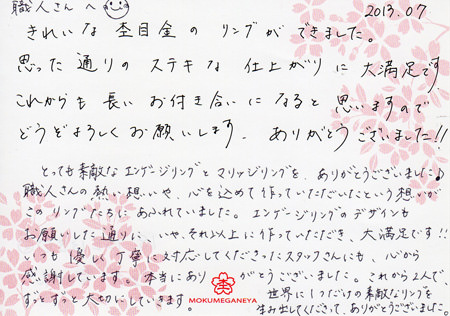 職人さんへ
2013.07
きれいな杢目金のリングができました。
思った通りのステキな仕上がりに大満足です
これからも長いお付き合いになると思いますので
どうぞよろしくお願いします。ありがとうございました!!
とっても素敵なエンゲージリングとマリッジリングを、ありがとうございました♪
職人さんの熱い想いや、心を込めて作っていただいたという想いが
このリングたちにあふれていました。エンゲージリングのデザインも
お願いした通りに、いや、それ以上に作っていただき、大満足です!!
いつも優しく丁寧に対応してくださったスタッフさんにも、心から
感謝しています。本当にありがとうございました。これから2人で、
ずっとずっと大切にしていきます。
世界に1つだけの素敵なリングを
生み出してくださって、ありがとうございました。
MOKUMEGANEYA